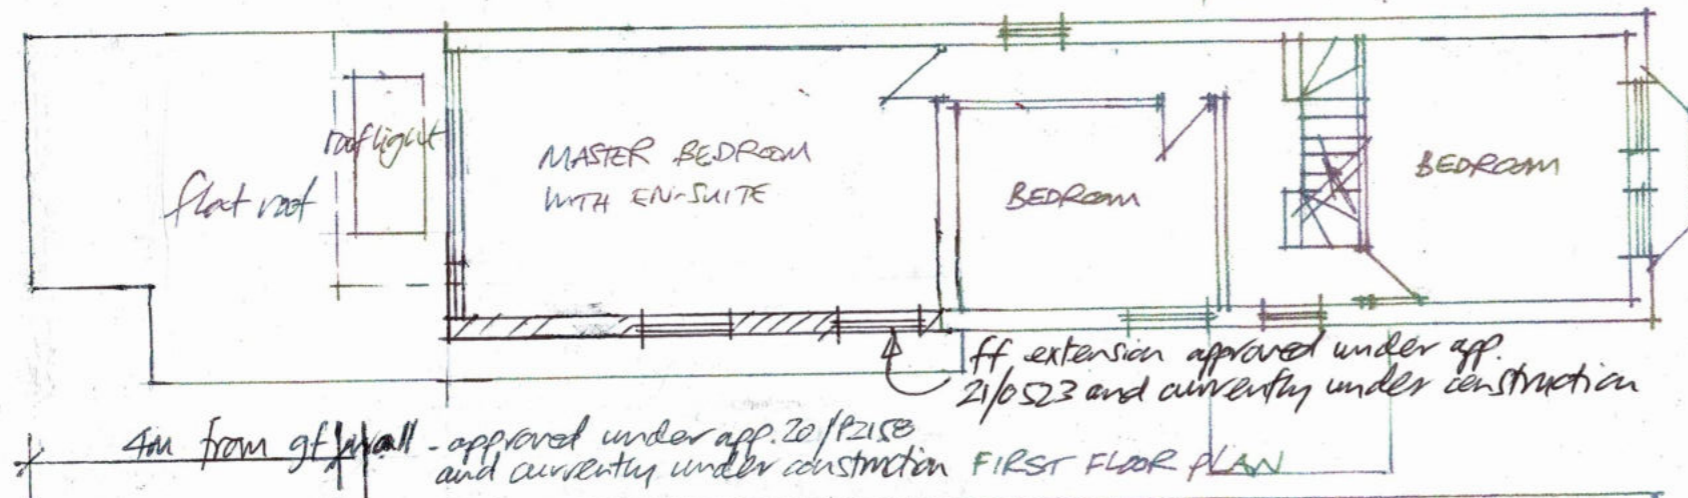 rooflight
flat roof
MASTER BEDROOM
WITH EN-SUITE
BEDROOM
BEDROOM
ff extension approved under app.
21/0523 and currently under construction
4m from gf wall - approved under app. 20/P2158
and currently under construction
FIRST FLOOR PLAN